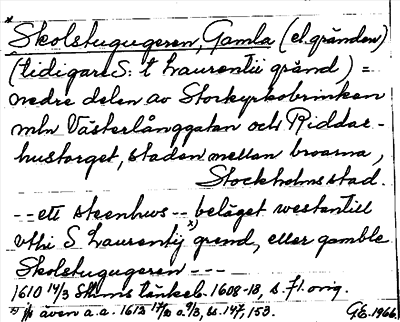 * Skolstugugeren, Gamla (el. gränden)
(tidigare S:t Laurentii gränd) =
nedre delen av Storkyrkobrinken
mln Västerlånggatan och Riddar-
hustorget, staden mellan broarna,
Stockholms stad.
-- ett steenhws -- beläget westantill
vthi S Laurentij x) grend, eller gamble
Skolstugugeren ---
1610 14/3 Sthms tänkeb. 1608-18, s. 71. orig.
x) jfr även a.a. 1613 17/2 o. 9/3, ss. 147, 153.
GE. 1966.